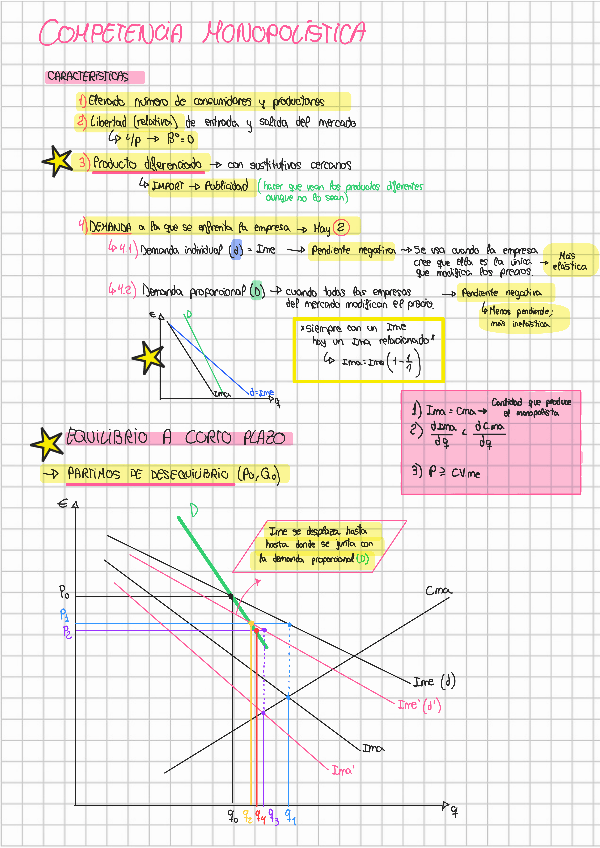 COMPETENCIA MONOPOLÍSTICA
CARACTERÍSTICAS
1) Elevado número de consumidores y productores
2) Libertad (relativa) de entrada y salida del mercado
↳ L/P → Bº = 0
3) Producto diferenciado → con sustitutivos cercanos
↳ IMPORT → Publicidad (hacer que vean los productos diferentes
aunque no lo sean)
4) DEMANDA a la que se enfrenta la empresa → Hay 2
↳ 4.1) Demanda individual (d) = Ime → Pendiente negativa → Se usa cuando la empresa
cree que ella es la única
que modifica los precios.
→ Más
elástica
↳ 4.2) Demanda proporcional (D) → cuando todas las empresas
del mercado modifican el precio.
→ Pendiente negativa
↳ Menos pendiente,
más inelástica
€
D
Ima
d=Ime
q
*Siempre con un Ime
hay un Ima relacionado*
↳ Ima = Ime (1 - 1/η)
1) Ima = Cma → Cantidad que produce
el monopolista
2) dIma/dq < dCma/dq
3) P ≥ CVme
EQUILIBRIO A CORTO PLAZO
→ PARTIMOS DE DESEQUILIBRIO (P₀, Q₀)
€
D
Ime se desplaza hasta
hasta donde se junta con
la demanda proporcional (D)
P₀
P₁
P₂
Cma
Ime (d)
Ime' (d')
Ima
Ima'
q₀ q₂ q₄ q₃ q₁
q